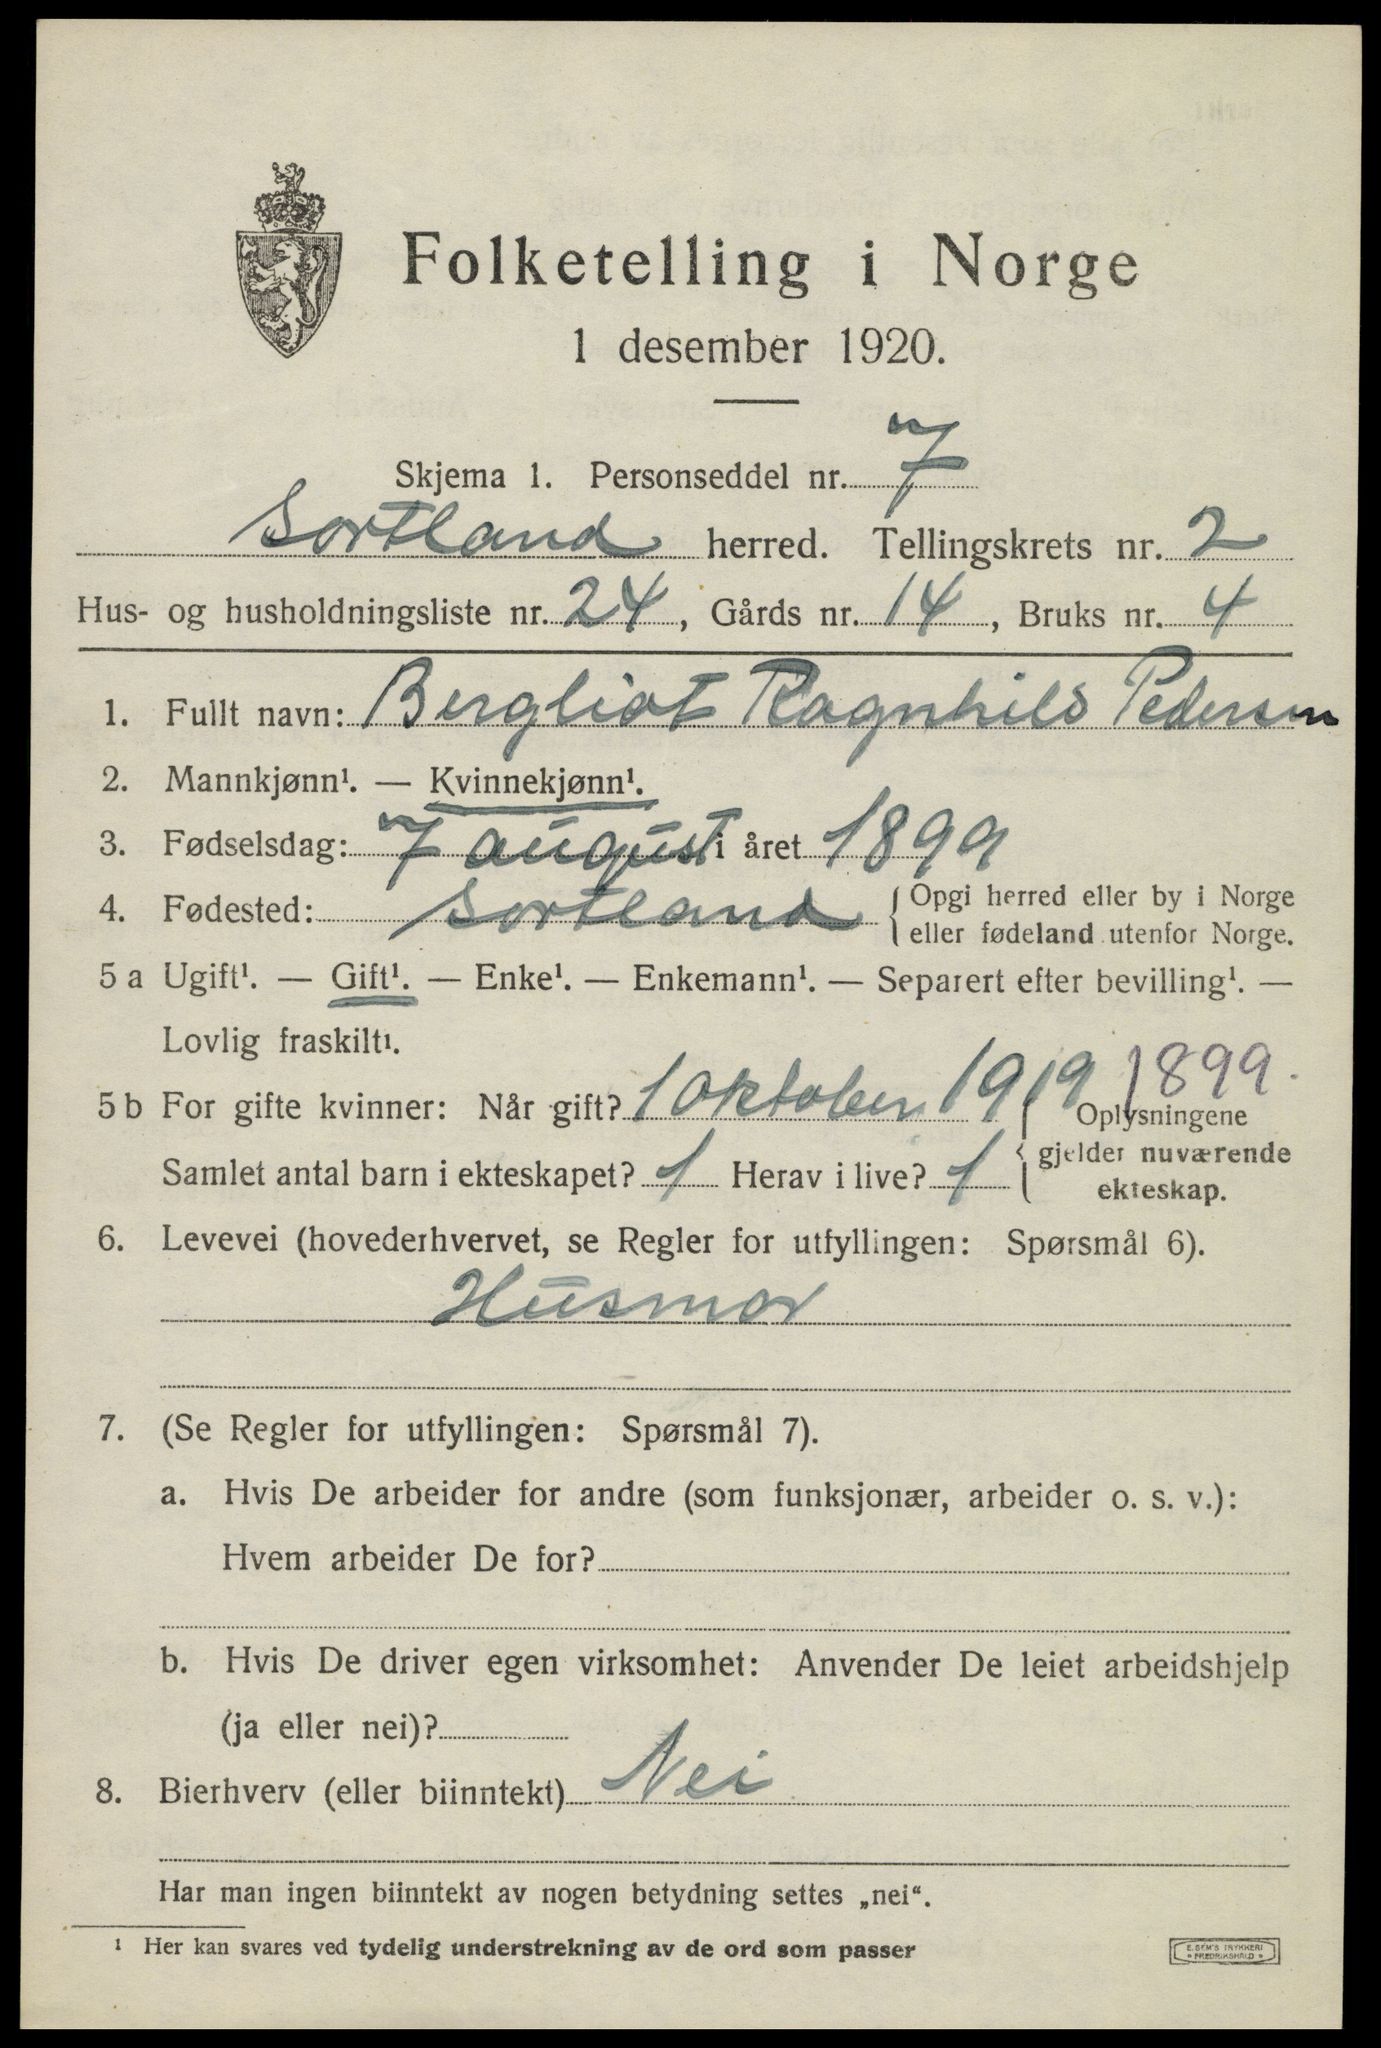 Folketelling i Norge
1 desember 1920.
Skjema 1. Personseddel nr. 7
Sortland herred. Tellingskrets nr. 2
Hus- og husholdningsliste nr. 24, Gårds nr. 14, Bruks nr. 4
1. Fullt navn: Bergliot Ragnhild Pedersen
2. Mannkjønn¹. — Kvinnekjønn¹.
3. Fødselsdag: 7 august i året 1899
4. Fødested: Sortland { Opgi herred eller by i Norge
eller fødeland utenfor Norge.
5 a Ugift¹. — Gift¹. — Enke¹. — Enkemann¹. — Separert efter bevilling¹. —
Lovlig fraskilt¹.
1899.
5 b For gifte kvinner: Når gift? 1 Oktober 1919 { Oplysningene
gjelder nuværende
Samlet antal barn i ekteskapet? 1 Herav i live? 1 ekteskap.
6. Levevei (hovederhvervet, se Regler for utfyllingen: Spørsmål 6).
Husmor
7. (Se Regler for utfyllingen: Spørsmål 7).
a. Hvis De arbeider for andre (som funksjonær, arbeider o. s. v.):
Hvem arbeider De for?
b. Hvis De driver egen virksomhet: Anvender De leiet arbeidshjelp
(ja eller nei)?
8. Bierhverv (eller biinntekt) Nei
Har man ingen biinntekt av nogen betydning settes „nei“.
¹ Her kan svares ved tydelig understrekning av de ord som passer
E. SEM'S TRYKKERI
* FREDRIKSHALD *